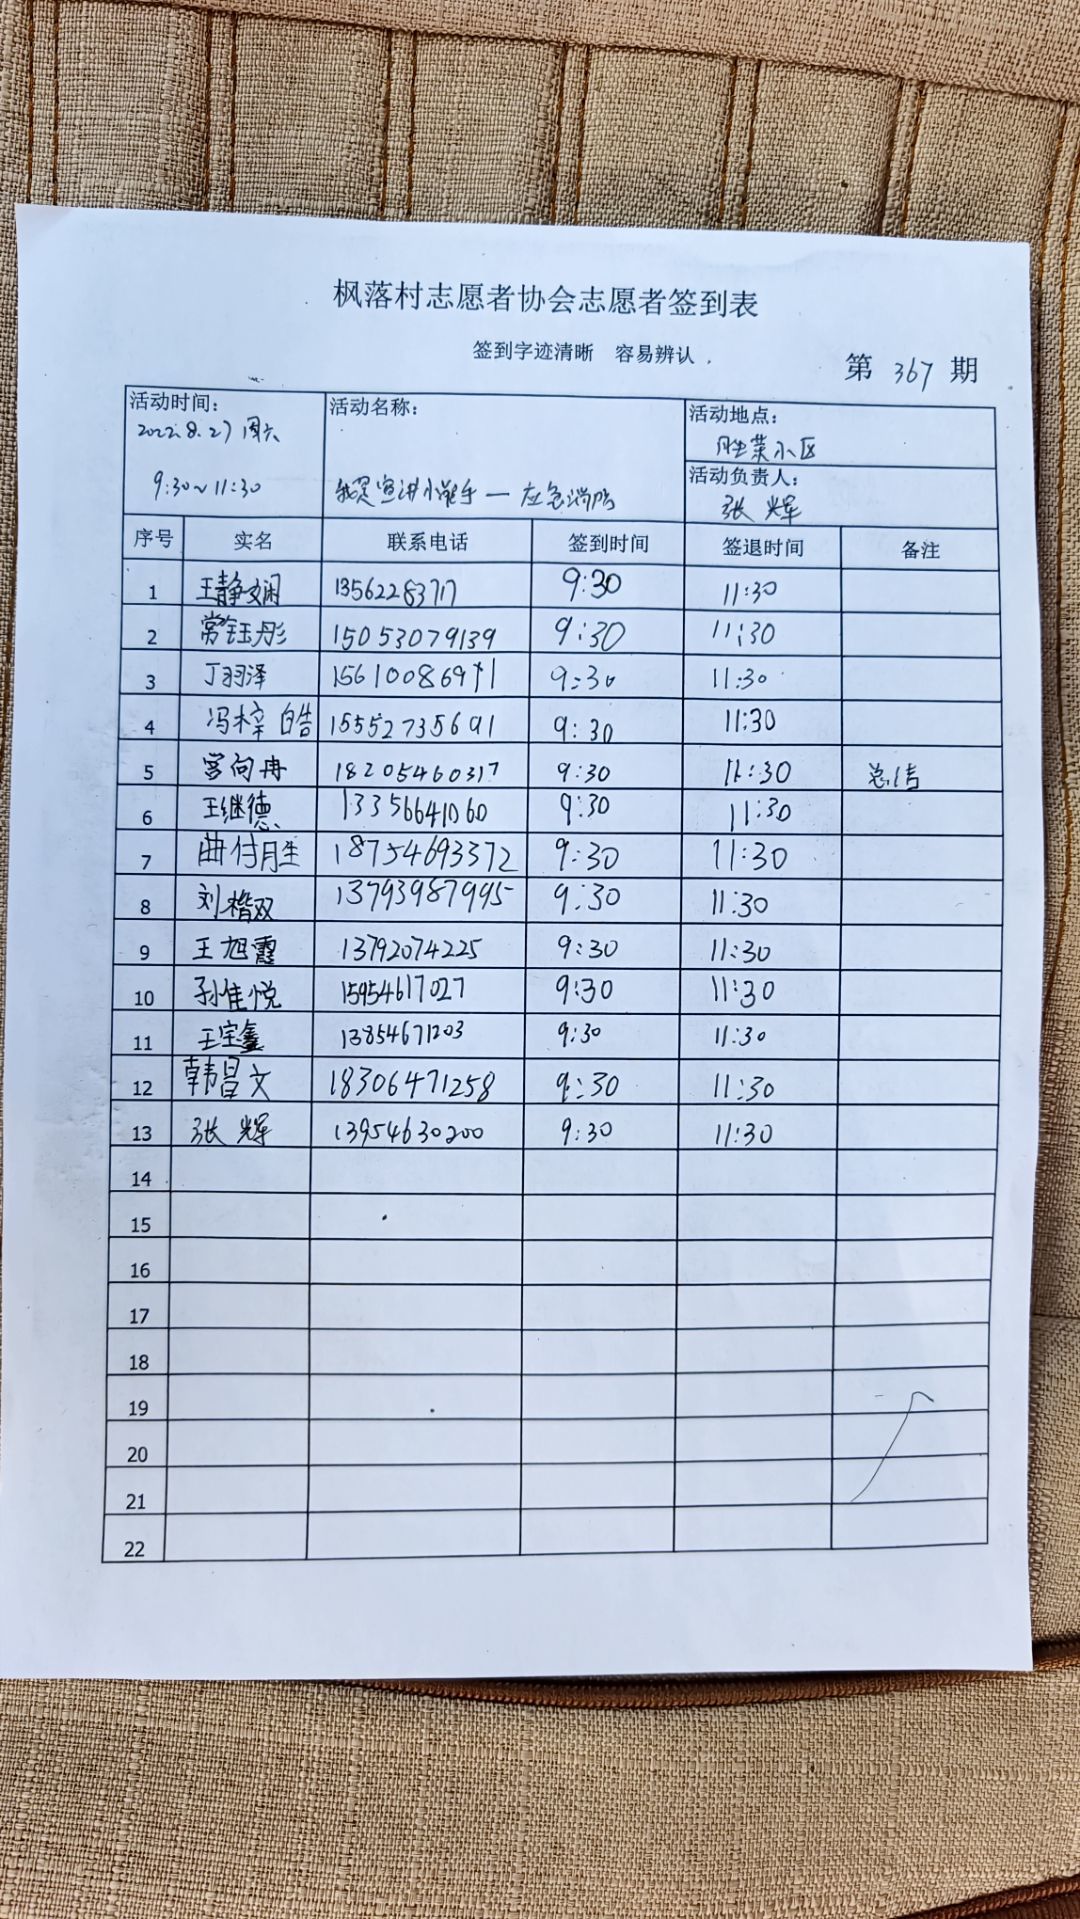 枫落村志愿者协会志愿者签到表
签到字迹清晰 容易辨认
第 367 期
活动时间：
2022.8.27 周六
9:30~11:30
活动名称：
我是宣讲小能手—应急消防
活动地点：
胜莱小区
活动负责人：
张辉
序号 实名 联系电话 签到时间 签退时间 备注
1 王静娴 13562283717 9:30 11:30
2 常钰彤 15053079139 9:30 11:30
3 丁羽泽 15610086911 9:30 11:30
4 冯梓皓 15552735691 9:30 11:30
5 宫向冉 18205460317 9:30 11:30 总结
6 王继德 13356641060 9:30 11:30
7 曲付胜 18754693372 9:30 11:30
8 刘楷双 13793987995 9:30 11:30
9 王旭霞 13792074225 9:30 11:30
10 孙佳悦 15954617027 9:30 11:30
11 王宝鑫 13854671203 9:30 11:30
12 韩昌文 18306471258 9:30 11:30
13 张辉 13954630200 9:30 11:30
14
15
16
17
18
19
20
21
22